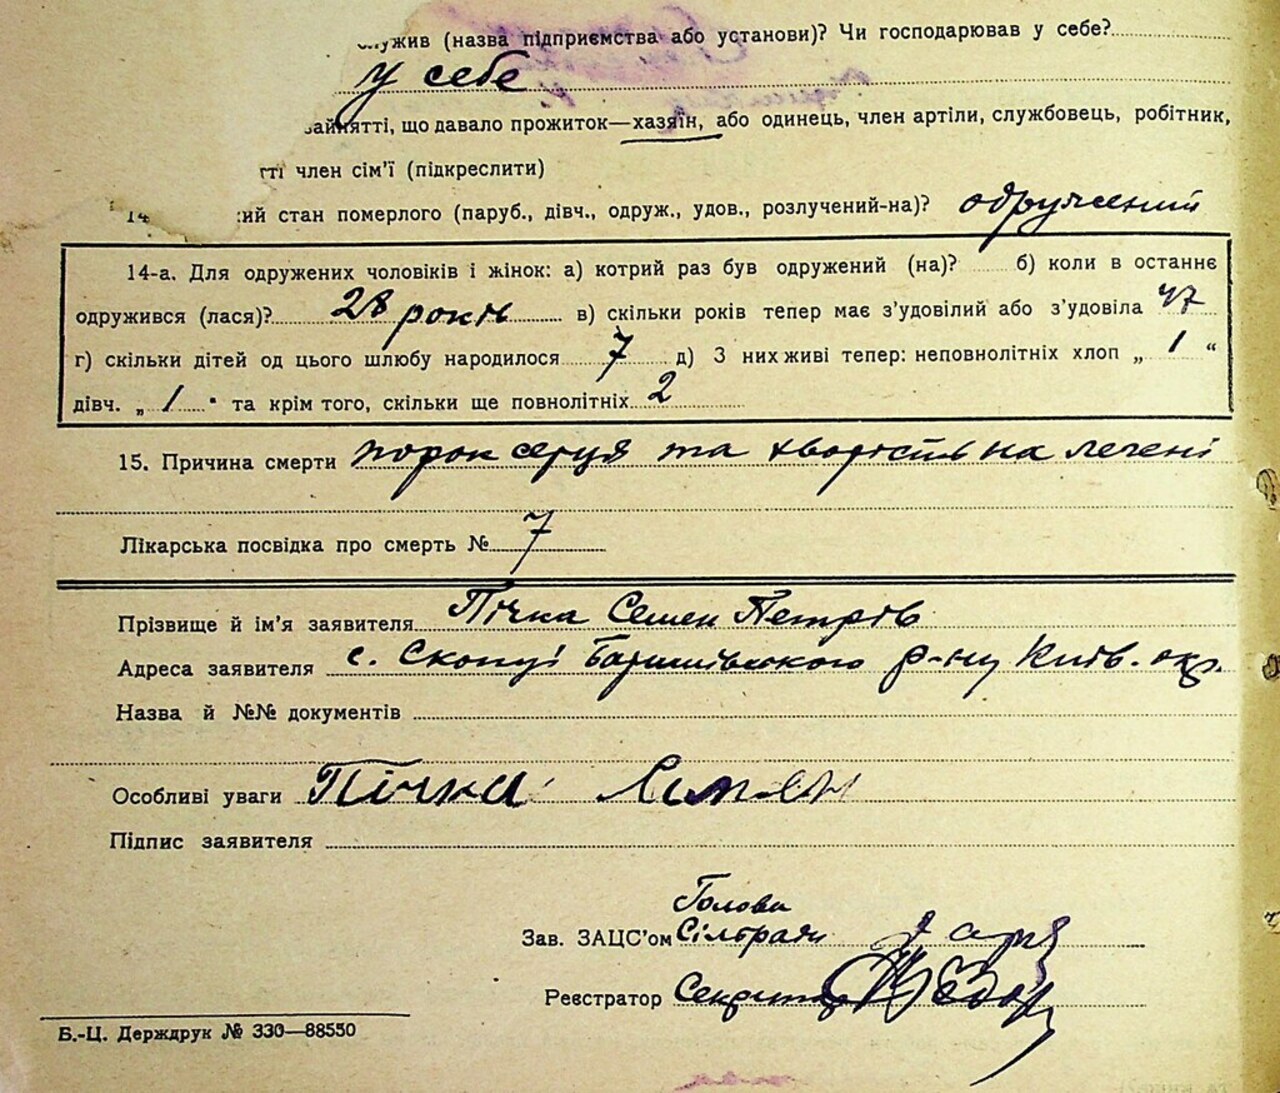 служив (назва підприємства або установи)? Чи господарював у себе?
у себе
зайнятті, що давало прожиток—хазяїн, або одинець, член артіли, службовець, робітник,
тті член сім'ї (підкреслити)
14. ий стан померлого (паруб., дівч., одруж., удов., розлучений-на)? одружений
14-а. Для одружених чоловіків і жінок: а) котрий раз був одружений (на)? б) коли в останнє
одружився (лася)? 28 років в) скільки років тепер має з'удовілий або з'удовіла 47
г) скільки дітей од цього шлюбу народилося 7 д) З них живі тепер: неповнолітніх хлоп „ 1 “
дівч. „ 1 " та крім того, скільки ще повнолітніх 2
15. Причина смерти порок серця та хворість на печені
Лікарська посвідка про смерть № 7
Прізвище й ім'я заявителя Пічка Семен Петрів
Адреса заявителя с. Скопці Баришівського р-ну Київ. окр.
Назва й №№ документів
Особливі уваги Пічка Симон
Підпис заявителя
Голова
Зав. ЗАЦС'ом Сільради
Реєстратор Секретар
Б.-Ц. Держдрук № 330—88550